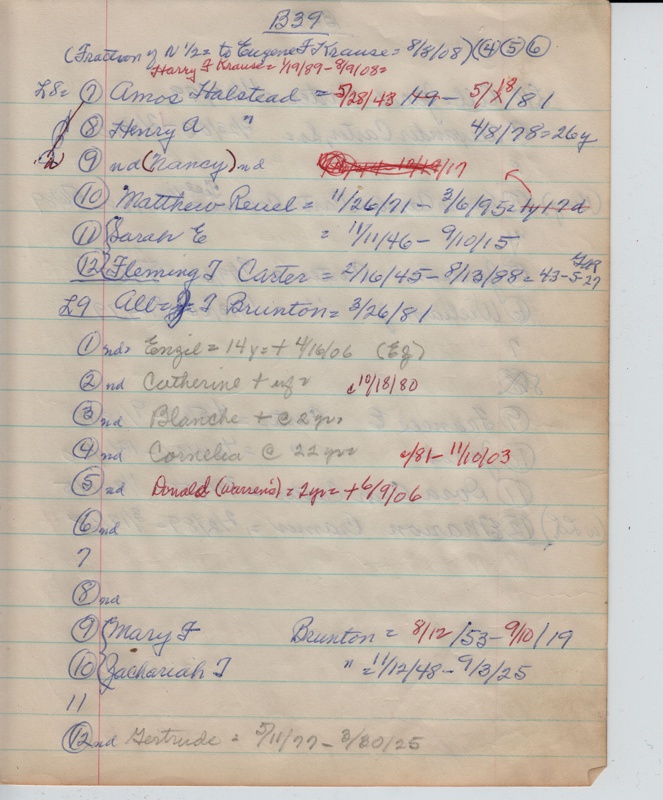 B39
(Fraction of N 1/2 = to Eugene F Krause = 8/8/08) ④ ⑤ ⑥
Harry F Krause = 1/19/89 - 8/9/08 =
L8 = ⑦ Amos Halstead = 5/28/43 - 5/18/81
⑧ Henry A " 4/8/78 = 26y
⑨ nd (Nancy) nd /17
⑩ Matthew Reuel = 11/26/71 - 3/6/95 = 1y 17d
⑪ Sarah E = 11/11/46 - 9/10/15
⑫ Fleming T Carter = 2/16/45 - 8/13/88 = 43-5-27
L9 All = T Brunton = 3/26/81
① nd = Engil = 14y = + 4/16/06 (Eg)
② nd Catherine + inf = c 10/18/80
③ nd Blanche + c 2 yrs
④ nd Cornelia c 22 yr = c/81 - 11/10/03
⑤ nd Donald (Warren's) = 2yr = + 6/9/06
⑥ nd
7
⑧ nd
⑨ Mary F Brunton = 8/12/53 - 9/10/19
⑩ Zachariah T " = 11/12/48 - 9/3/25
11
⑫ nd Gertrude = 5/11/77 - 3/30/25